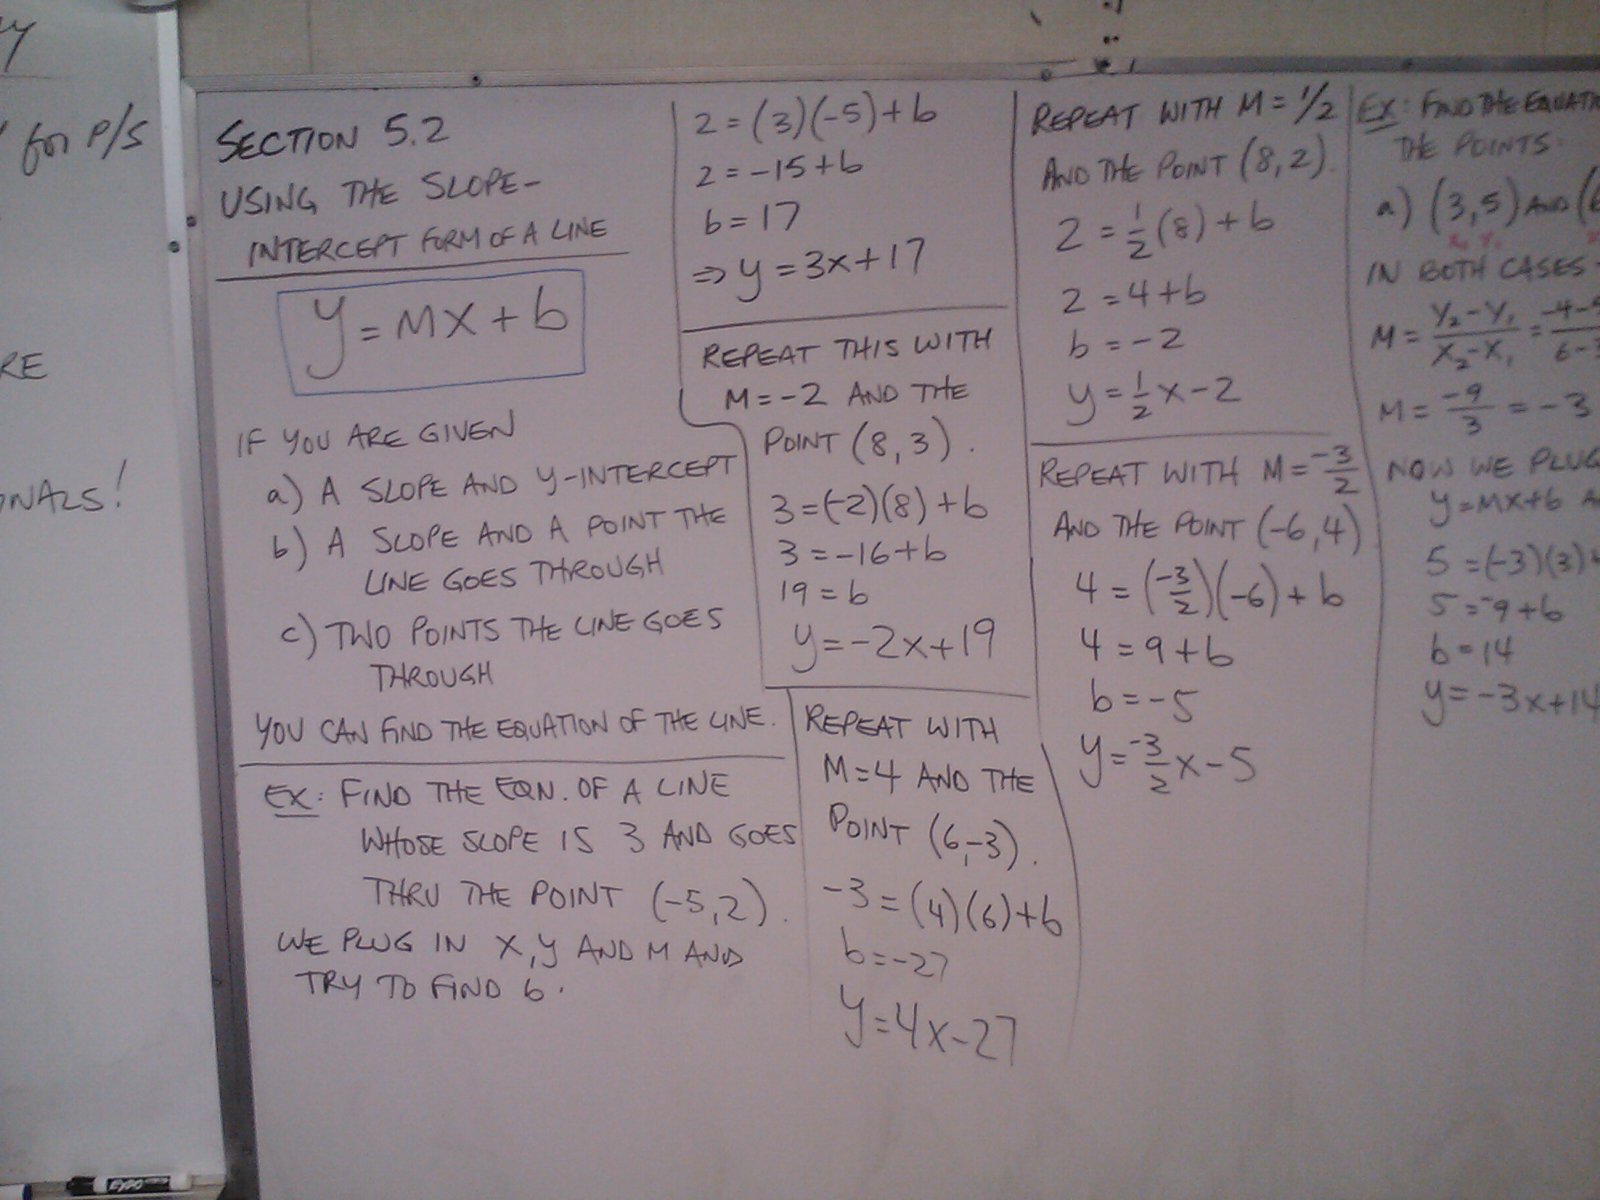 y
for P/S
RE
ONALS!
SECTION 5.2
USING THE SLOPE-
INTERCEPT FORM OF A LINE
y = Mx + b
IF YOU ARE GIVEN
a) A SLOPE AND Y-INTERCEPT
b) A SLOPE AND A POINT THE
LINE GOES THROUGH
c) TWO POINTS THE LINE GOES
THROUGH
YOU CAN FIND THE EQUATION OF THE LINE.
EX: FIND THE EQN. OF A LINE
WHOSE SLOPE IS 3 AND GOES
THRU THE POINT (-5,2).
WE PLUG IN X, Y AND M AND
TRY TO FIND b.
2 = (3)(-5) + b
2 = -15 + b
b = 17
⇒ y = 3x + 17
REPEAT THIS WITH
M = -2 AND THE
POINT (8, 3).
3 = (-2)(8) + b
3 = -16 + b
19 = b
y = -2x + 19
REPEAT WITH
M = 4 AND THE
POINT (6, -3).
-3 = (4)(6) + b
b = -27
y = 4x - 27
REPEAT WITH M = 1/2
AND THE POINT (8, 2).
2 = 1/2 (8) + b
2 = 4 + b
b = -2
y = 1/2 x - 2
REPEAT WITH M = -3/2
AND THE POINT (-6, 4)
4 = (-3/2)(-6) + b
4 = 9 + b
b = -5
y = -3/2 x - 5
EX: FIND THE EQUATI
THE POINTS:
a) (3, 5) AND (6
X₁ Y₁
IN BOTH CASES
M = Y₂-Y₁/X₂-X₁ = -4-5/6-3
M = -9/3 = -3
NOW WE PLUG
y = Mx + b A
5 = (-3)(3) +
5 = -9 + b
b = 14
y = -3x + 14
EXPO